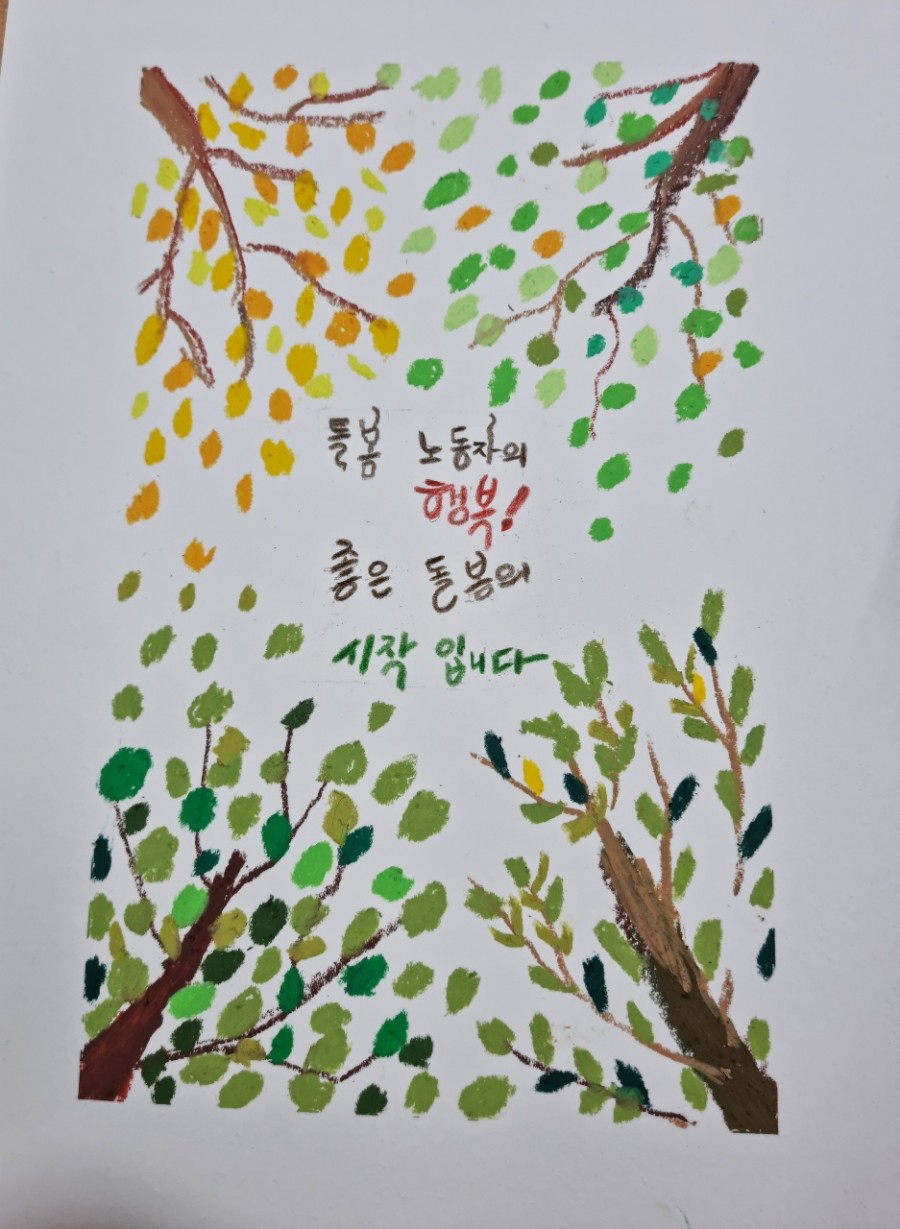 돌봄 노동자의
행복!
좋은 돌봄의
시작 입니다